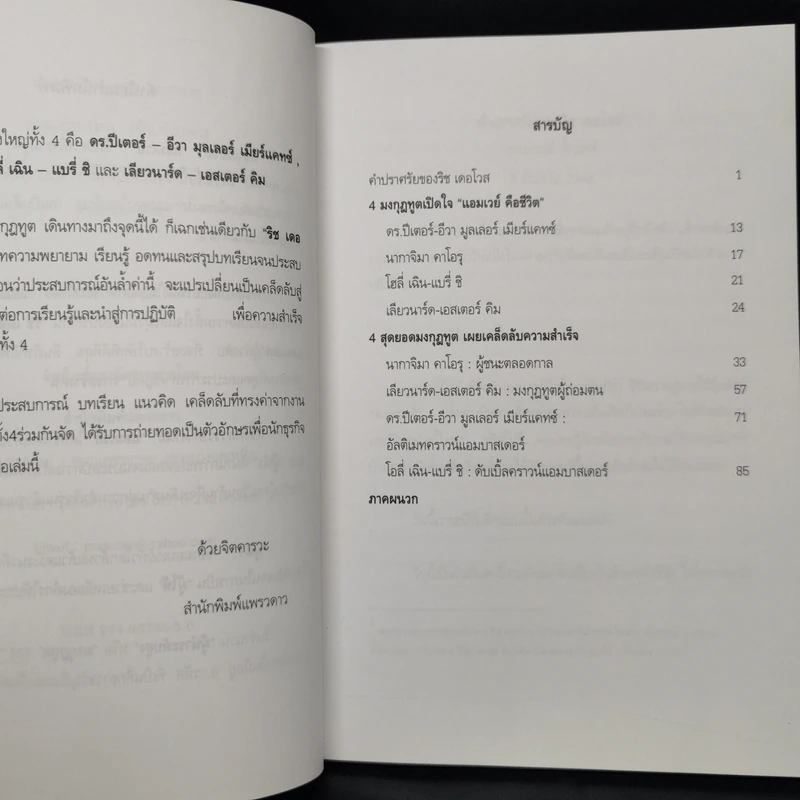 งใหญ่ทั้ง 4 คือ ดร.ปีเตอร์ – อีวา มุลเลอร์ เมียร์แคทซ์ ,
ลี่ เฉิน – แบรี่ ชิ และ เลียวนาร์ด – เอสเตอร์ คิม
กุฎทูต เดินทางมาถึงจุดนี้ได้ ก็เฉกเช่นเดียวกับ "ริช เดอ
ทความพยายาม เรียนรู้ อดทนและสรุปบทเรียนจนประสบ
อนว่าประสบการณ์อันล้ำค่านี้ จะแปรเปลี่ยนเป็นเคล็ดลับสู่
ต่อการเรียนรู้และนำสู่การปฏิบัติ เพื่อความสำเร็จ
ทั้ง 4
ประสบการณ์ บทเรียน แนวคิด เคล็ดลับที่ทรงค่าจากงาน
ทั้ง4ร่วมกันจัด ได้รับการถ่ายทอดเป็นตัวอักษรเพื่อนักธุรกิจ
อเล่มนี้
ด้วยจิตคารวะ
สำนักพิมพ์แพรวดาว
สารบัญ
คำปราศรัยของริช เดอโวส 1
4 มงกุฎทูตเปิดใจ "แอมเวย์ คือชีวิต"
ดร.ปีเตอร์-อีวา มูลเลอร์ เมียร์แคทซ์ 13
นากาจิมา คาโอรุ 17
โฮลี่ เฉิน-แบรี่ ชิ 21
เลียวนาร์ด-เอสเตอร์ คิม 24
4 สุดยอดมงกุฎทูต เผยเคล็ดลับความสำเร็จ
นากาจิมา คาโอรุ : ผู้ชนะตลอดกาล 33
เลียวนาร์ด-เอสเตอร์ คิม : มงกุฎทูตผู้ถ่อมตน 57
ดร.ปีเตอร์-อีวา มูลเลอร์ เมียร์แคทซ์ : 71
อัลติเมทคราวน์แอมบาสเดอร์
โอลี่ เฉิน-แบรี่ ชิ : ดับเบิ้ลคราวน์แอมบาสเดอร์ 85
ภาคผนวก